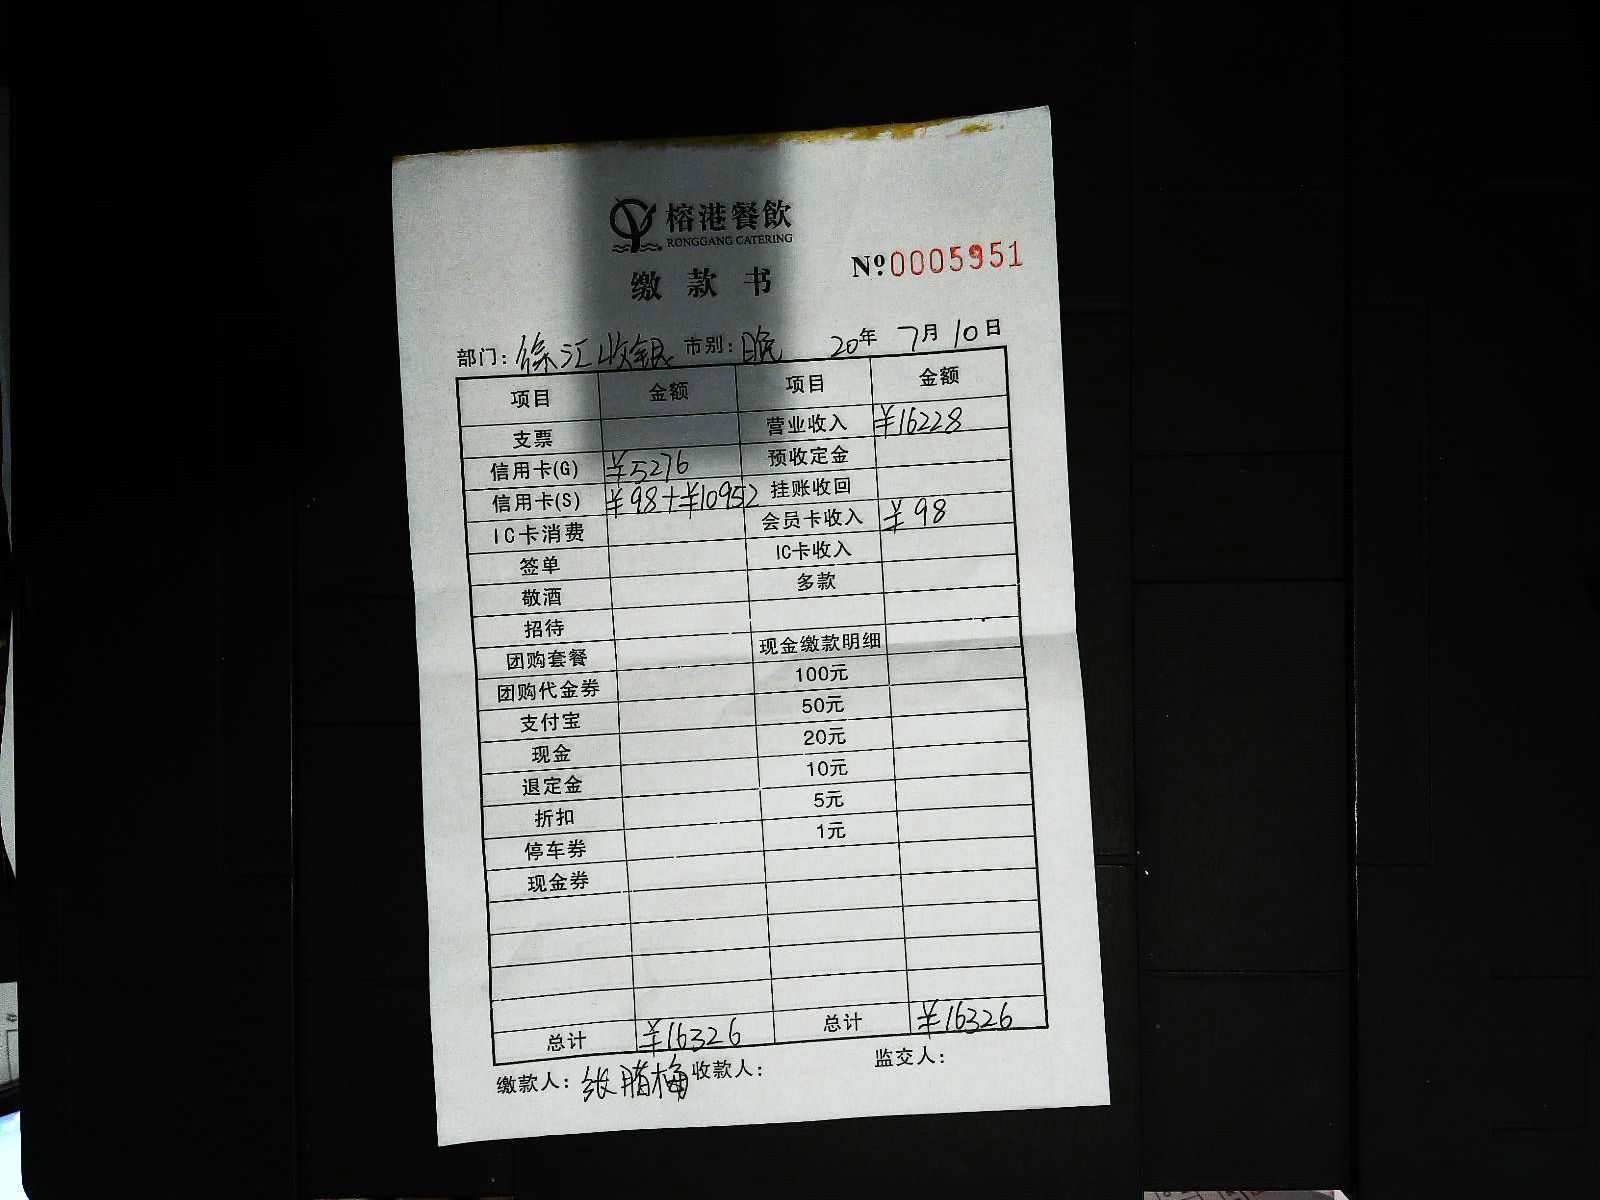 榕港餐飲
RONGGANG CATERING
缴款书
Nº0005951
部门：徐汇收银 市别：晚 20年 7月10日
项目 金额 项目 金额
支票 营业收入 ¥16228
信用卡(G) ¥5276 预收定金
信用卡(S) ¥98+¥10952 挂账收回
IC卡消费 会员卡收入 ¥98
签单 IC卡收入
敬酒 多款
招待
团购套餐 现金缴款明细
团购代金券 100元
支付宝 50元
现金 20元
退定金 10元
折扣 5元
停车券 1元
现金券
总计 ¥16326 总计 ¥16326
缴款人：腊梅 收款人： 监交人：